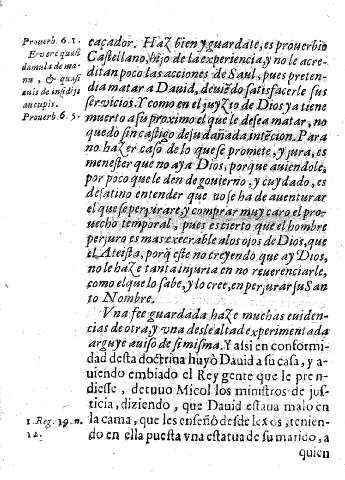 Prouerb. 6. 1.
Eruere quasi
damula de ma-
nu, & quasi
auis de insidijs
aucupis.
Prouerb. 6. 5.
caçador. Haz bien y guardate, es prouerbio
Castellano, hijo de la experiencia, y no le acre-
ditan poco las acciones de Saul, pues preten-
dia matar a Dauid, deuiẽdo satisfacerle sus
seruicios. Y como en el juyzio de Dios ya tiene
muerto a su proximo el que le desea matar, no
quedò sin castigo de su dañada intẽcion. Para
no hazer caso de lo que se promete, y jura, es
menester que no aya Dios, porque auiendole,
por poco que le den de gouierno, y cuydado, es
desatino entender que no se ha de auenturar
el que se perjurare, y comprar muy caro el pro-
uecho temporal, pues es cierto que el hombre
perjuro es mas execrable a los ojos de Dios, que
el Ateista, porq̃ este no treyendo que ay Dios,
no le haze tanta injuria en no reuerenciarle,
como el que lo sabe, y lo cree, en perjurar su San
to Nombre.
Vna fee guardada haze muchas euiden-
cias de otra, y vna deslealtad experimentada
arguye auiso de si misma. Y assi en conformi
dad desta doctrina huyò Dauid a su casa, y a-
uiendo embiado el Rey gente que le pren-
diesse, detuuo Micol los ministros de jus-
ticia, diziendo, que Dauid estaua malo en
la cama, que les enseñò desde lexos, tenien-
do en ella puesta vna estatua de su marido, a
quien
1. Reg. 19. n.
12.